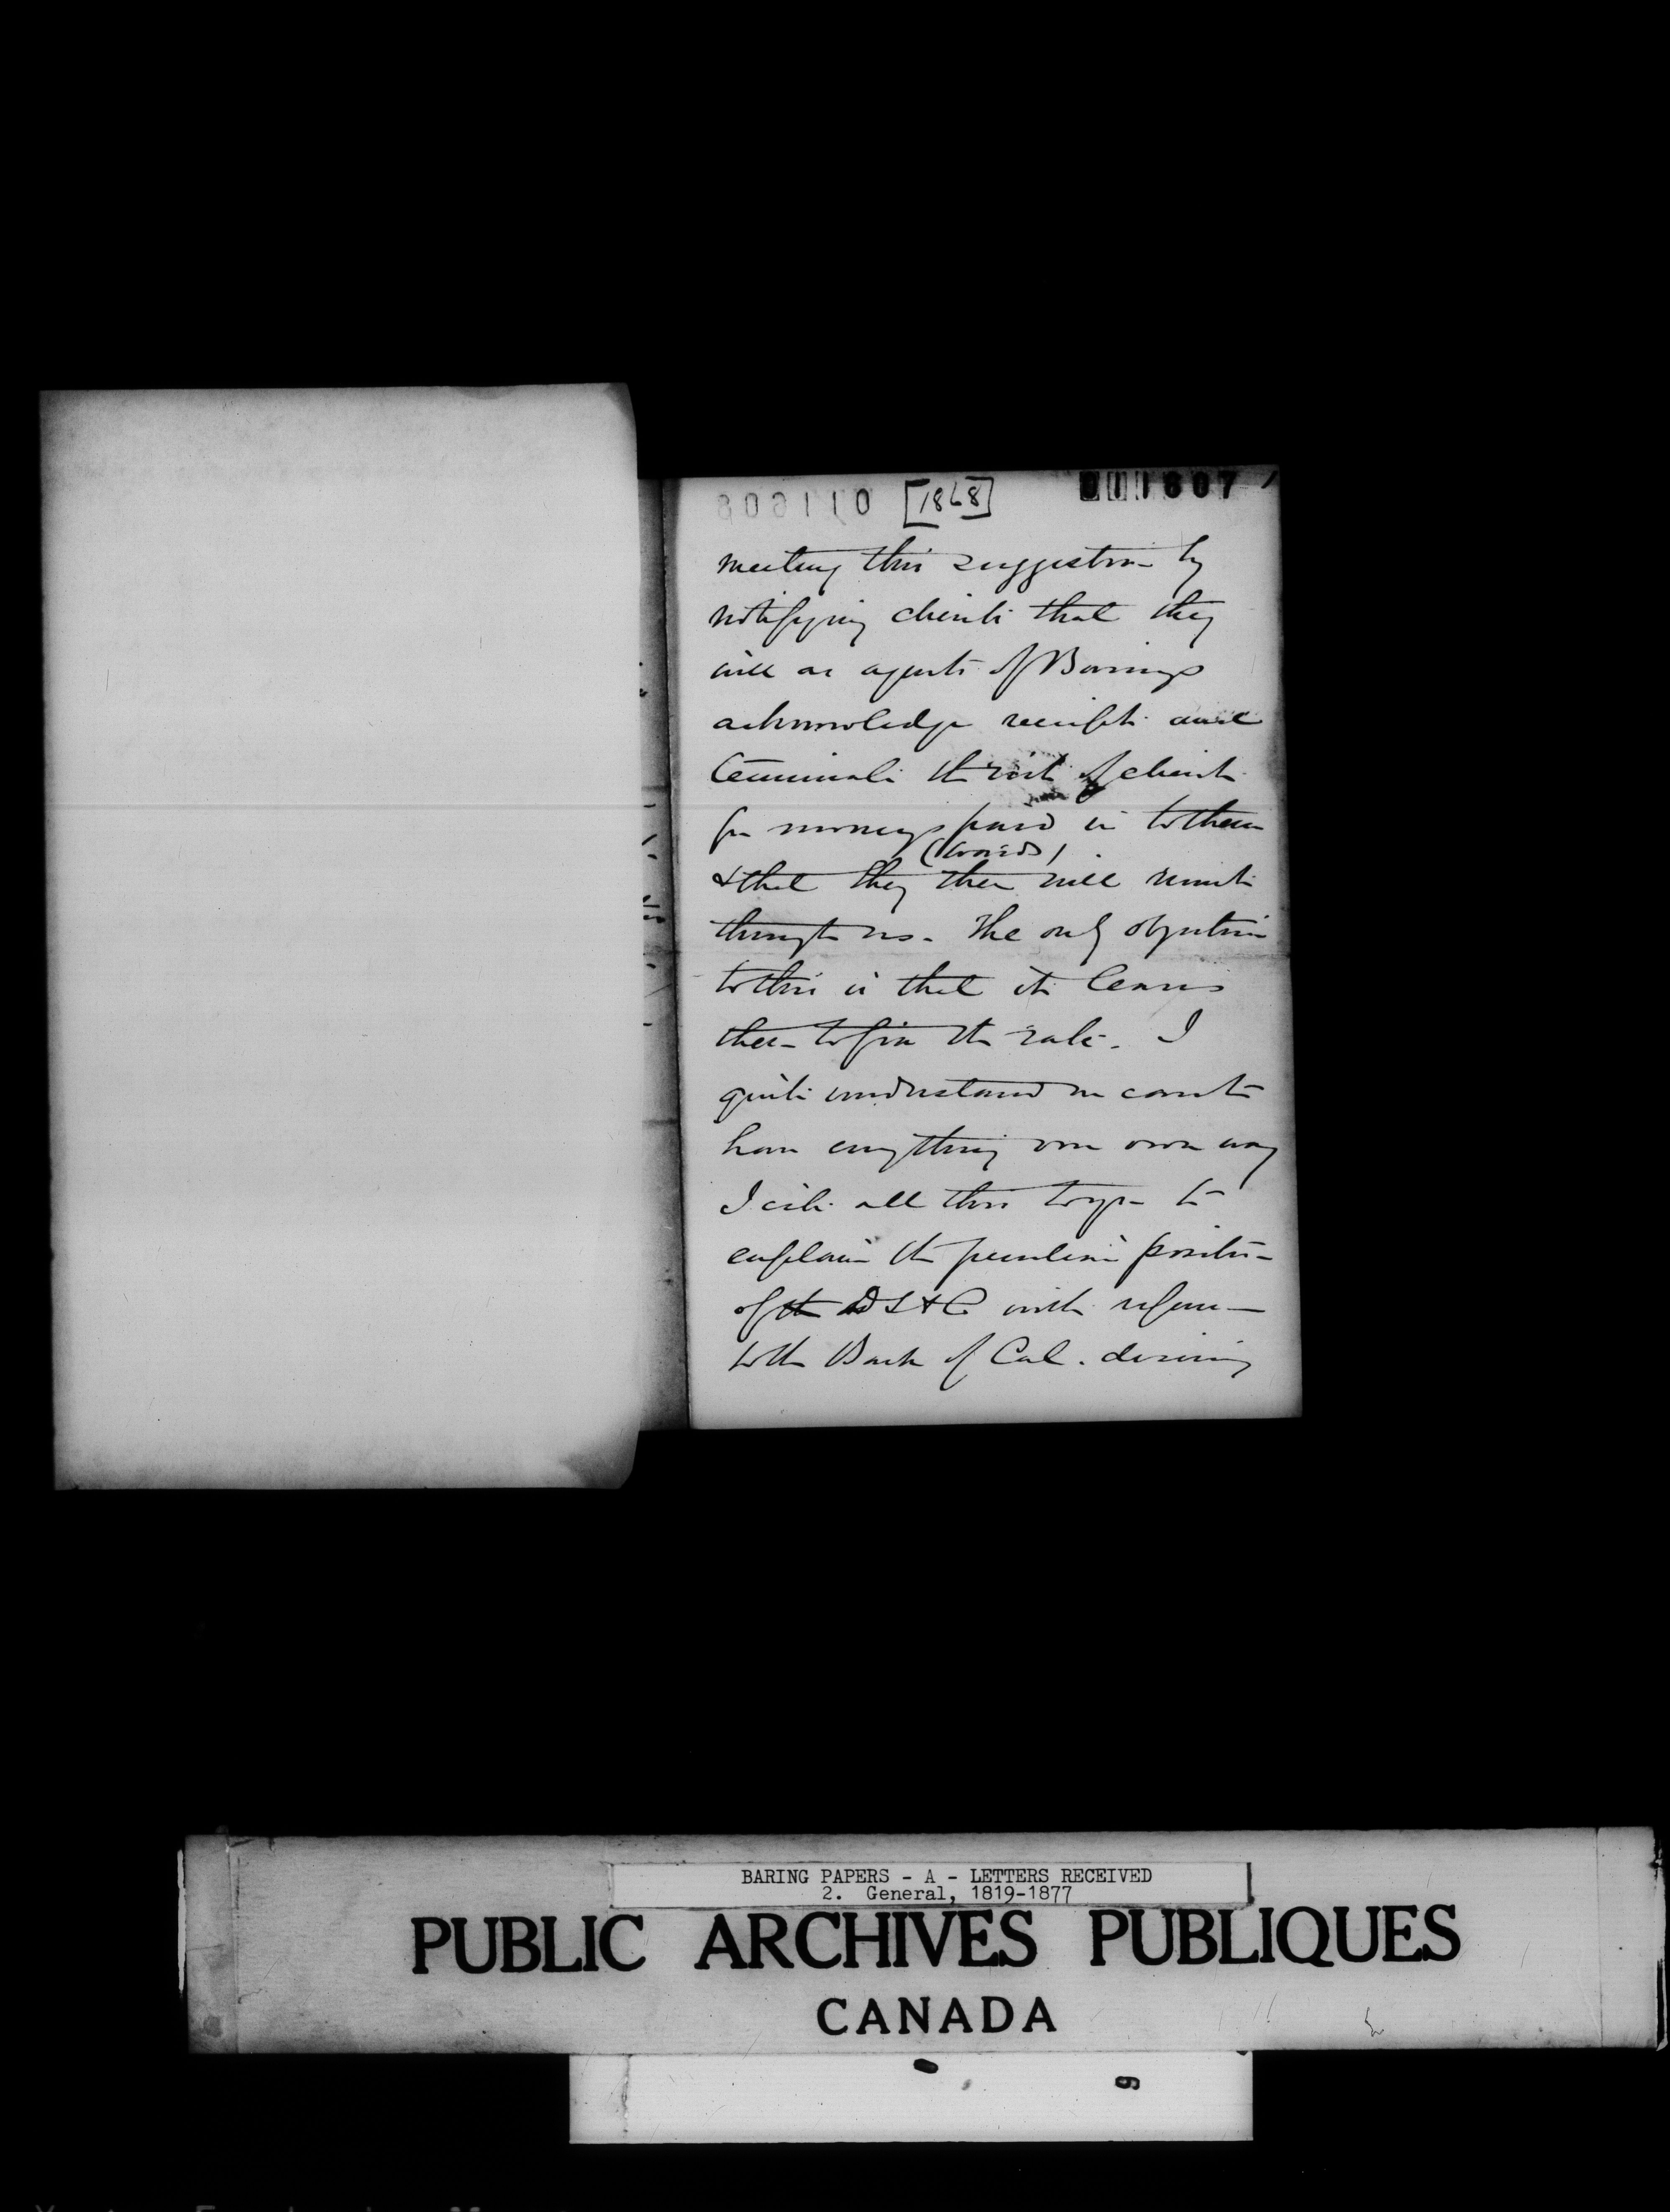 [1868]
011607
meeting this suggestion by
notifying clients that they
will as agents of Barings
acknowledge receipt and
terminate the risk of client
for moneys paid in to them
(Barings)
& that they then will remit
through us. The only objection
to this is that it leaves
them to fix the rate. I
quite understand we cannot
have everything our own way
I cite all this to you to
explain the peculiar position
of the D S & C with reference
to the Bank of Cal. desiring
BARING PAPERS - A - LETTERS RECEIVED
2. General, 1819-1877
PUBLIC ARCHIVES PUBLIQUES
CANADA